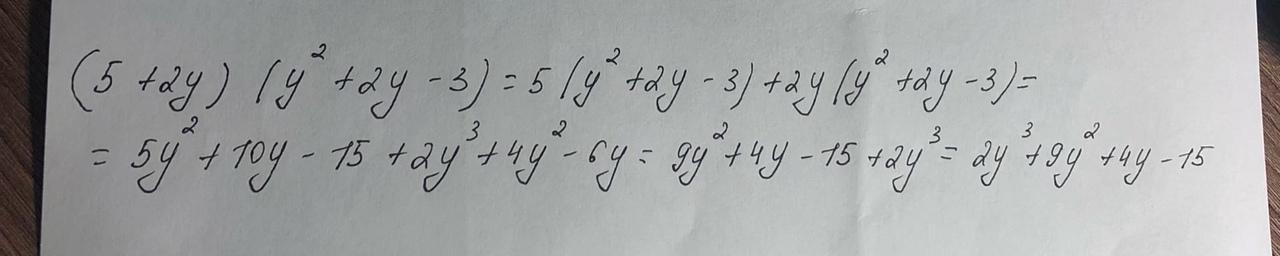 (5 + 2y) (y² + 2y - 3) = 5 (y² + 2y - 3) + 2y (y² + 2y - 3) =
= 5y² + 10y - 15 + 2y³ + 4y² - 6y = 9y² + 4y - 15 + 2y³ = 2y³ + 9y² + 4y - 15